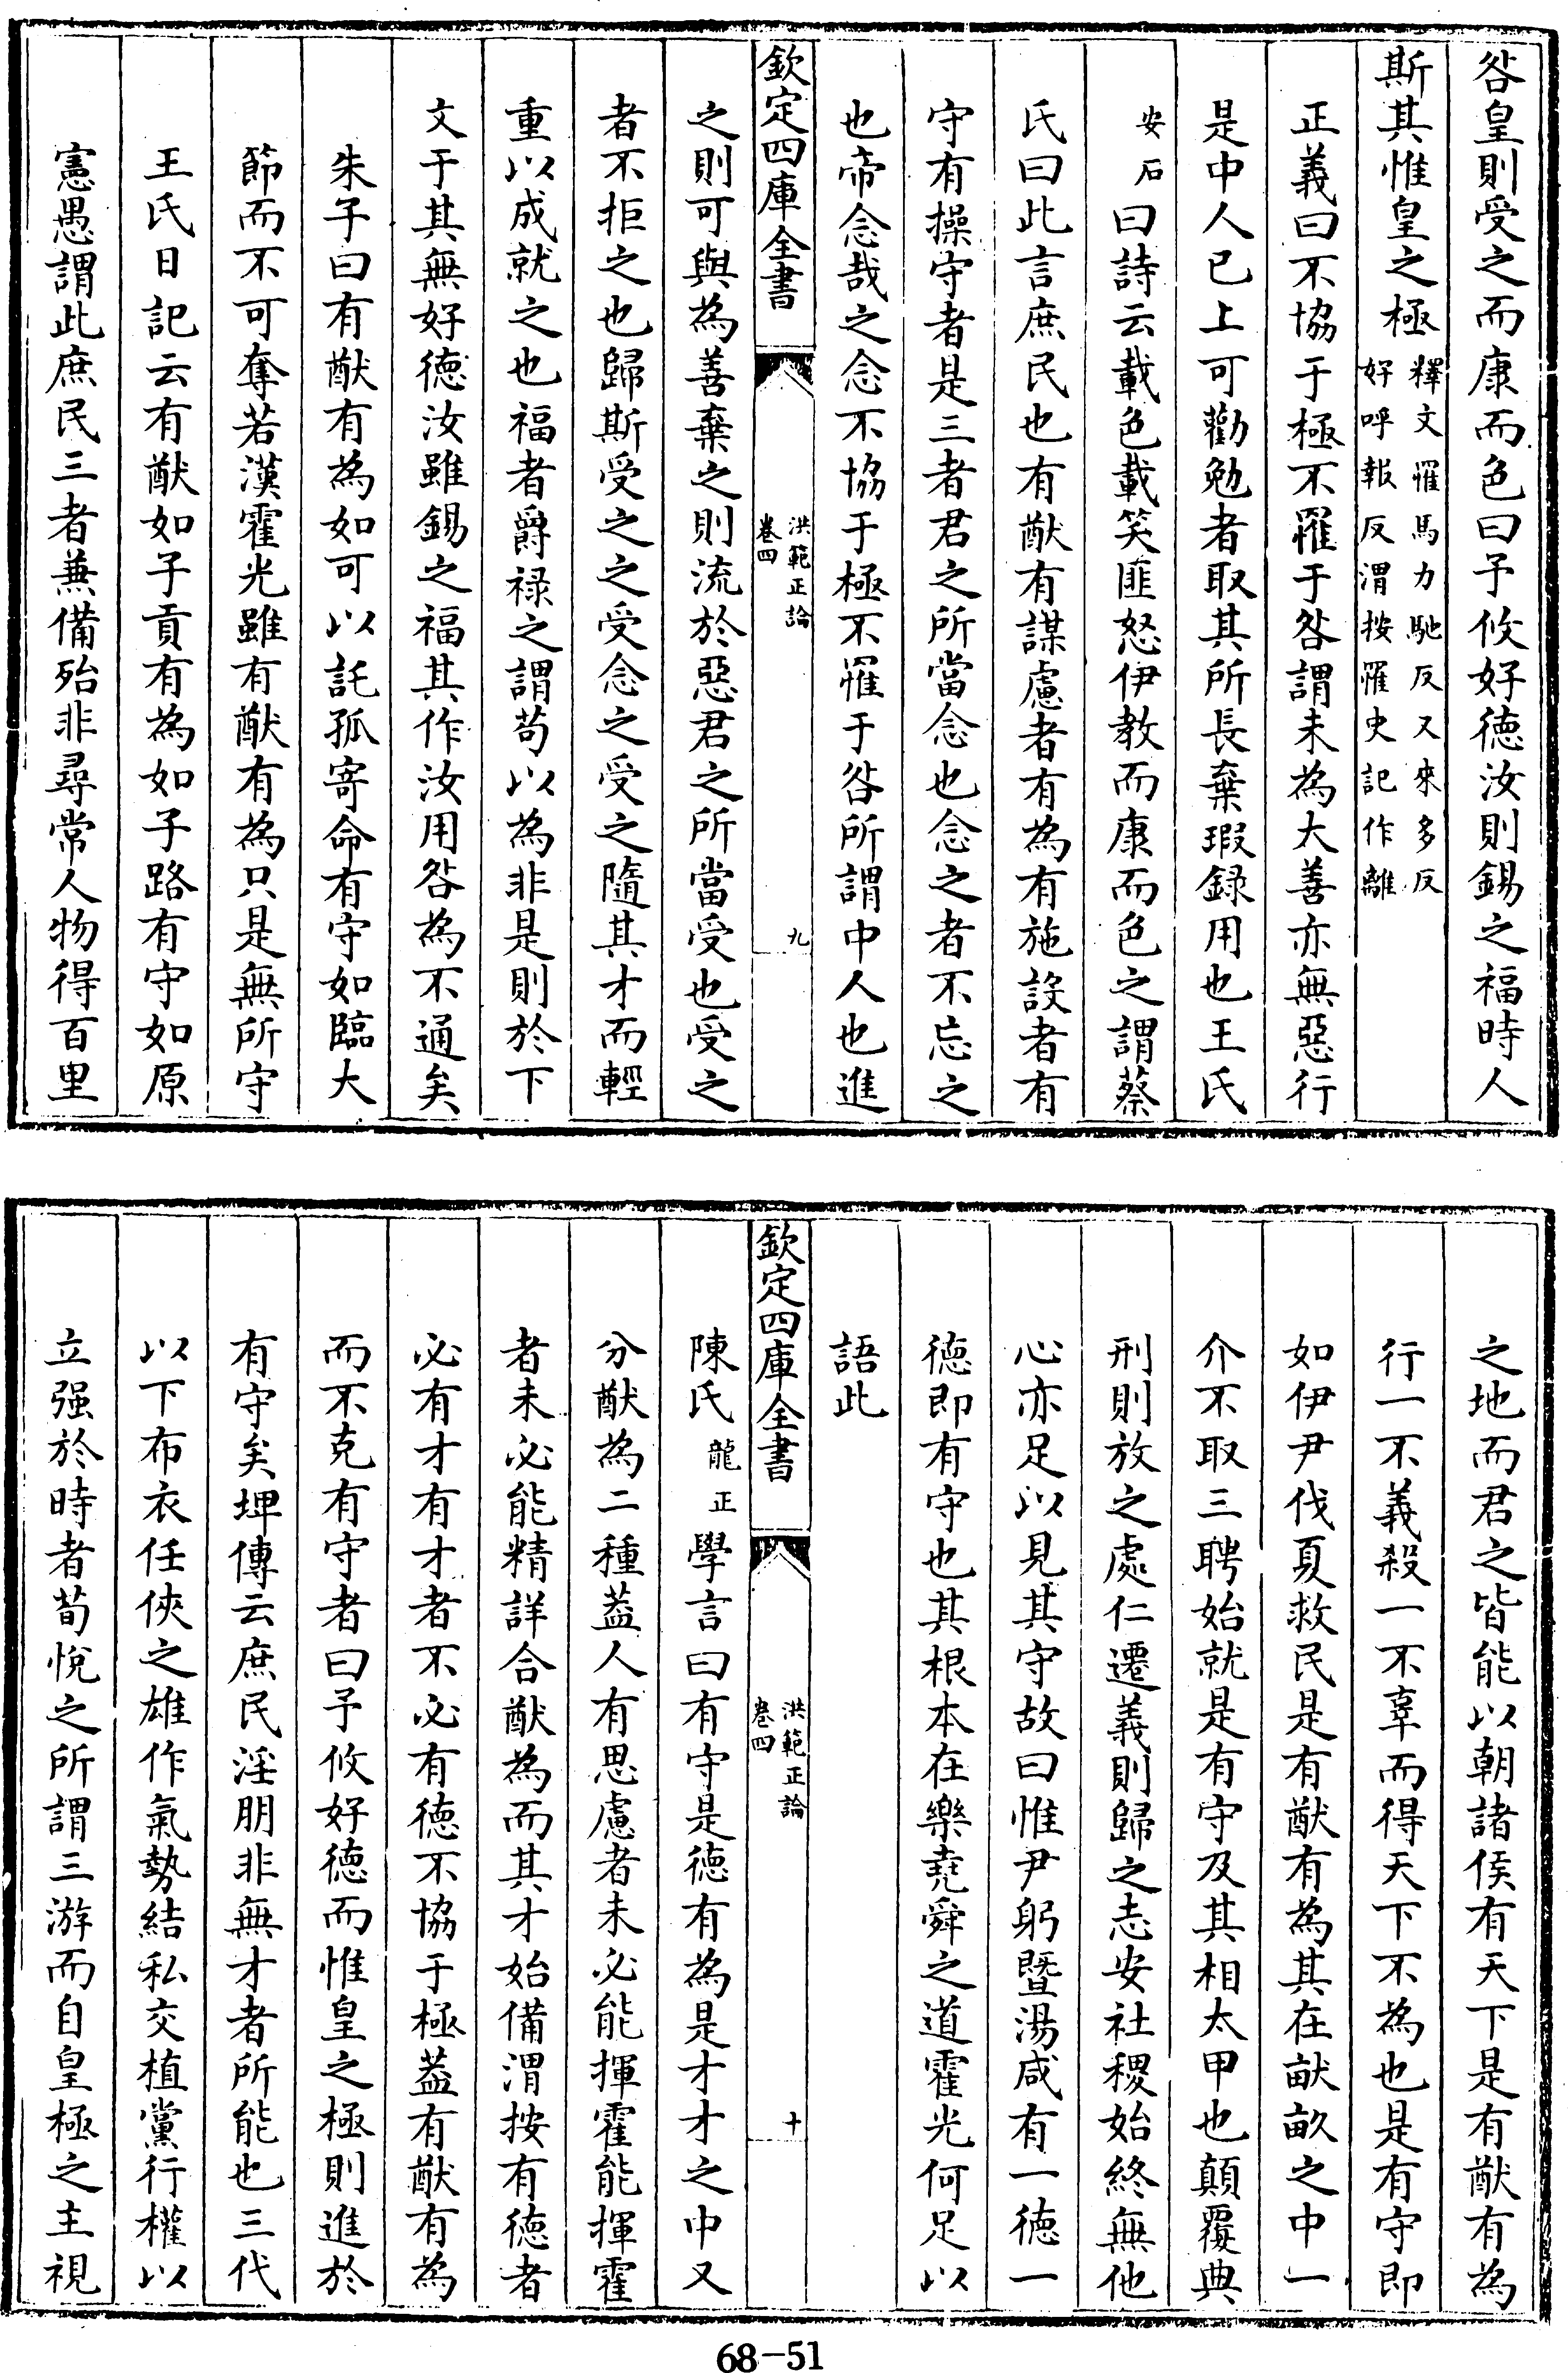 咎皇則受之而康而色曰予攸好徳汝則錫之福時人
斯其惟皇之極釋文罹馬力馳反又來多反好呼報反渭按罹史記作離
正義曰不協于極不罹于咎謂未為大善亦無惡行
是中人已上可勸勉者取其所長棄瑕録用也王氏
安石曰詩云載色載笑匪怒伊教而康而色之謂蔡
氏曰此言庶民也有猷有謀慮者有為有施設者有
守有操守者是三者君之所當念也念之者不忘之
也帝念哉之念不協于極不罹于咎所謂中人也進
欽定四庫全書
洪範正論
卷四
九
之則可與為善棄之則流於惡君之所當受也受之
者不拒之也歸斯受之之受念之受之隨其才而輕
重以成就之也福者爵禄之謂苟以為非是則於下
文于其無好徳汝雖錫之福其作汝用咎為不通矣
朱子曰有猷有為如可以託孤寄命有守如臨大
節而不可奪若漢霍光雖有猷有為只是無所守
王氏日記云有猷如子貢有為如子路有守如原
憲愚謂此庶民三者兼備殆非尋常人物得百里
之地而君之皆能以朝諸侯有天下是有猷有為
行一不義殺一不辜而得天下不為也是有守即
如伊尹伐夏救民是有猷有為其在畎畝之中一
介不取三聘始就是有守及其相太甲也顛覆典
刑則放之處仁遷義則歸之志安社稷始終無他
心亦足以見其守故曰惟尹躬暨湯咸有一徳一
徳即有守也其根本在樂堯舜之道霍光何足以
語此
欽定四庫全書
洪範正論
卷四
十
陳氏龍正學言曰有守是徳有為是才才之中又
分猷為二種蓋人有思慮者未必能揮霍能揮霍
者未必能精詳合猷為而其才始備渭按有徳者
必有才有才者不必有徳不協于極蓋有猷有為
而不克有守者曰予攸好徳而惟皇之極則進於
有守矣埤傳云庶民淫朋非無才者所能也三代
以下布衣任俠之雄作氣勢結私交植黨行權以
立强於時者荀悅之所謂三游而自皇極之主視
68-51